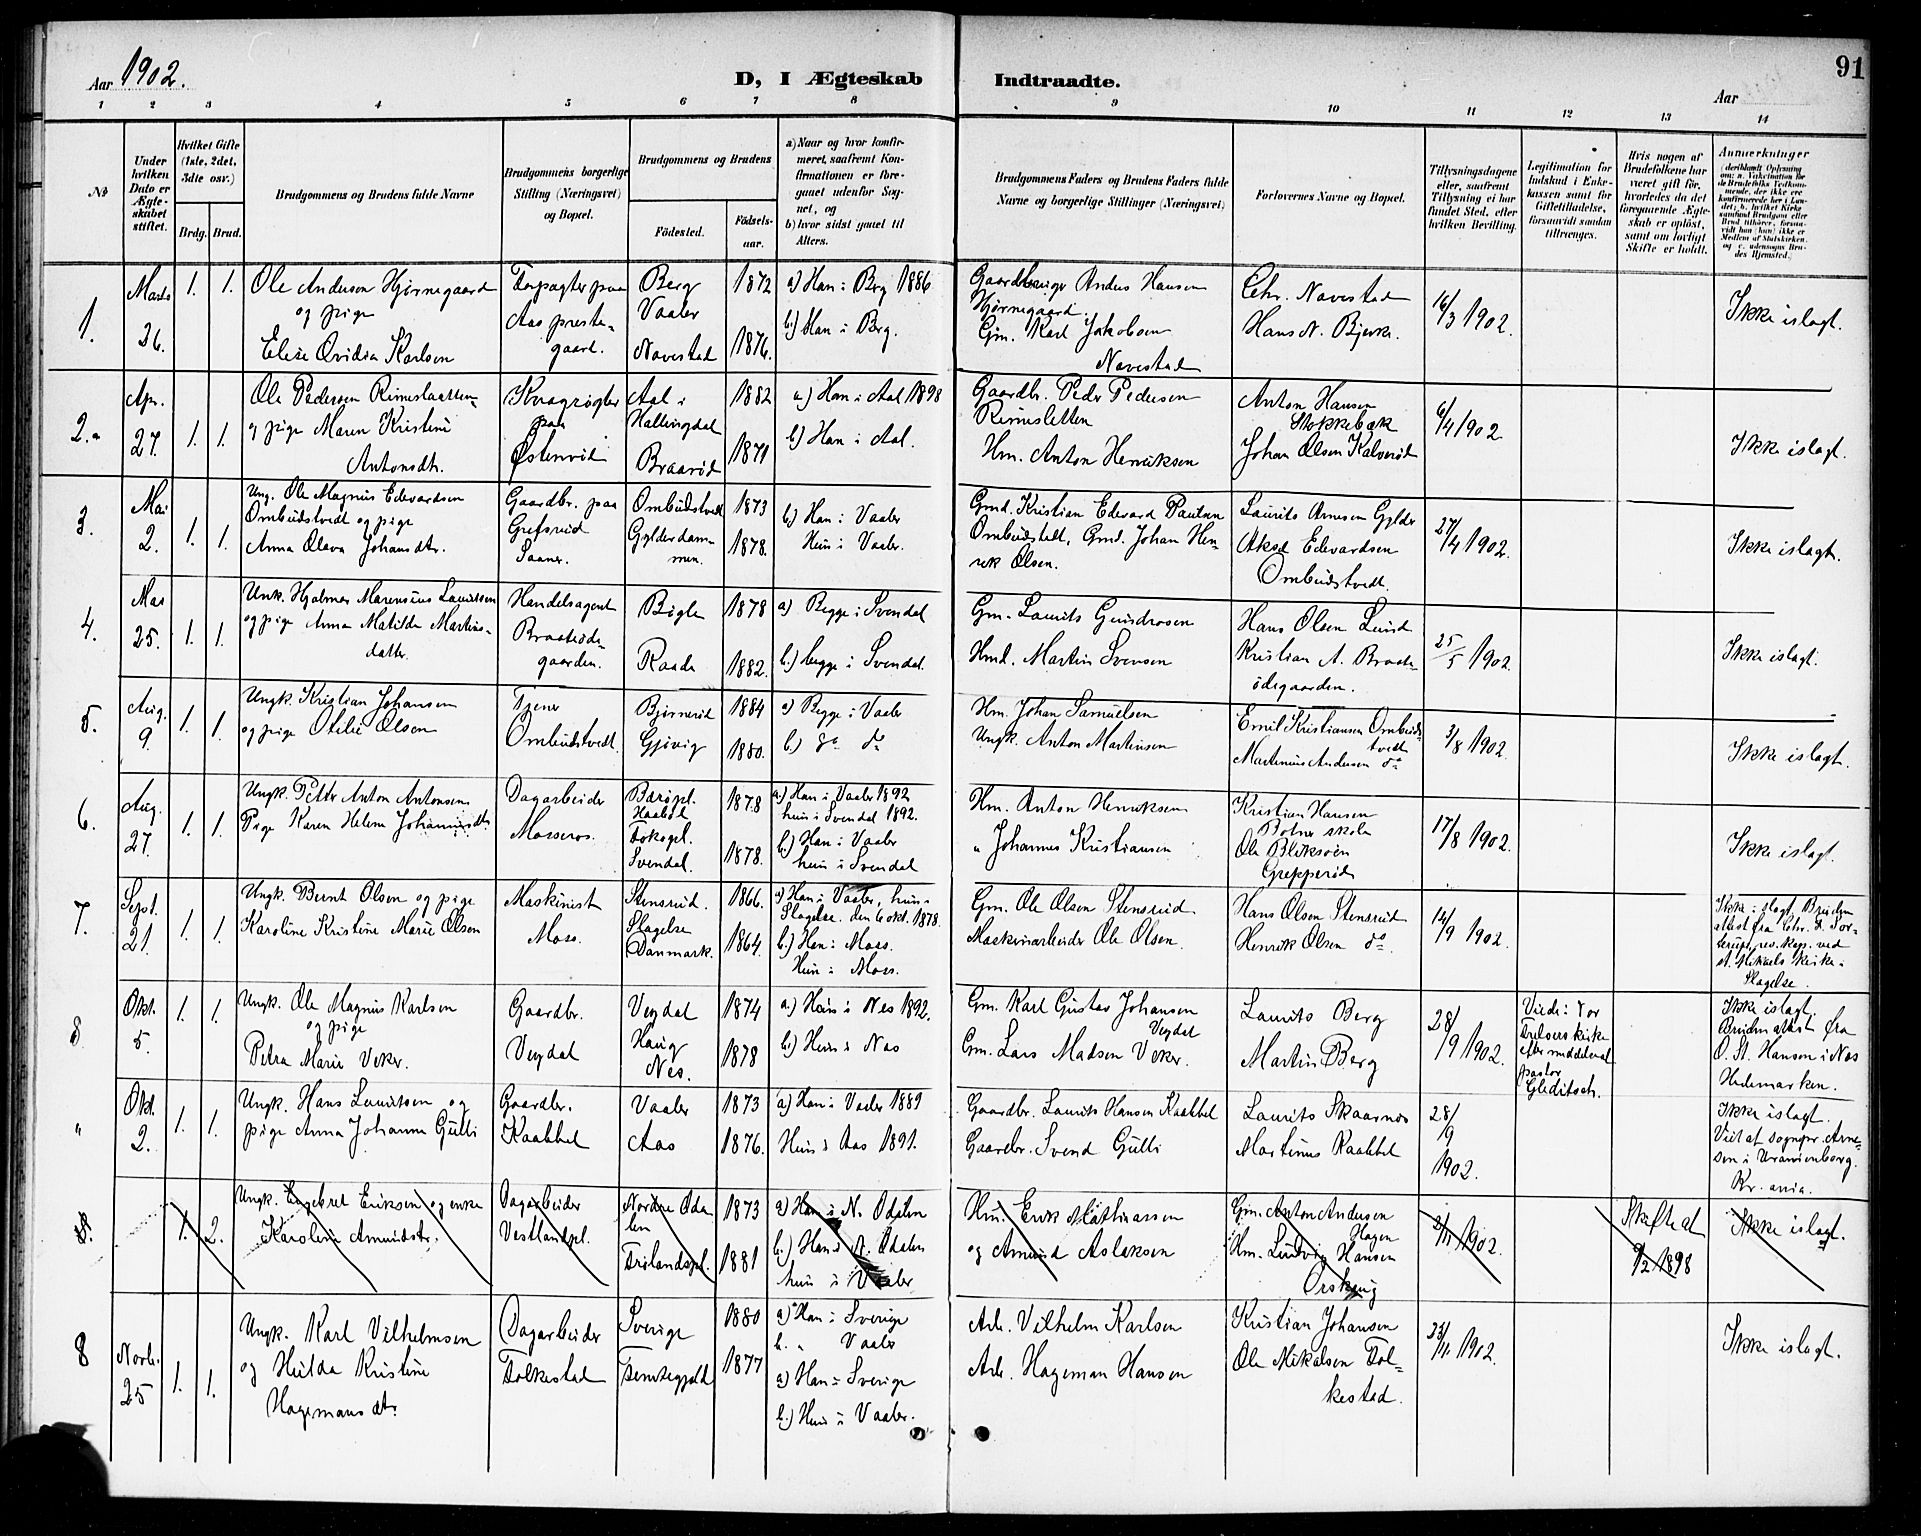 Aar 1902.
D, I Ægteskab Indtraadte.
91
Aar
1 2 3 4 5 6 7 8 9 10 11 12 13 14
№
Under hvilken Dato er Ægteskabet stiftet.
Hvilket Gifte (1ste, 2det, 3dte osv.)
Brdg. Brud.
Brudgommens og Brudens fulde Navne
Brudgommens borgerlige Stilling (Næringsvei) og Bopæl.
Brudgommens og Brudens
Fødested.
Fødselsaar.
a) Naar og hvor konfirmeret, saafremt Konfirmationen er foregaaet udenfor Sognet, og
b) hvor sidst gaaet til Alters.
Brudgommens Faders og Brudens Faders fulde Navne og borgerlige Stillinger (Næringsvei)
Forlovernes Navne og Bopæl.
Tillysningsdagene eller, saafremt Tillysning ei har fundet Sted, efter hvilken Bevilling.
Legitimation for Indskud i Enkekassen samt for Giftetilladelse, forsaavidt saadan tiltrænges.
Hvis nogen af Brudefolkene har været gift før, hvorledes da det foregaaende Ægteskab er opløst, samt om lovligt Skifte er holdt.
Anmerkninger
1. Marts 26. 1. 1.
Ole Anderson Hjørnegaard
og pige
Elise Ovidia Karlsen
Forpagter paa
Aas prestegaard.
Berg
Vaaler
Navestad
1872
1876.
a) Han i Brg 1886
b) Han i Berg.
Gaardbruger Anders Hansen
Hjørnegaard.
Gm. Karl Jakobsen
Navestad
Chr. Navestad
Hans N. Bjerke.
16/3 1902.
Ikke i slagt.
2. Apr. 27. 1. 1.
Ole Pedersen Rimeslaatten
og pige Maren Kristine
Antonsdtr.
paa
Østenrød
Aal i
Hallingdal
Braarød
1882
1871
a) Han i Aal 1898
b) Han i Aal.
Gaardbr. Peder Pedersen
Rimesletten
Hm. Anton Henriksen
Anton Hansen
Stokkebæk
Johan Olsen Kalverød
6/4 1902
Ikke i slagt.
3. Mai 2. 1. 1.
Ung. Ole Magnus Edvardsen
Ombudstvedt og pige
Anna Olava Johansdtr.
Gaardbr. paa
Grefsrud
Saaner.
Ombudstvedt
Gylderdammen.
1873
1878.
b) Han i Vaaler
Hun i Vaaler.
Gmd. Kristian Edvard Paulsen
Ombudstvedt, Gmd. Johan Henrik Olsen.
Laurits Arnesen Gylder
Aksel Edvardsen
Ombudstvedt.
27/4 1902.
Ikke i slagt.
4. Mai 25. 1. 1.
Unk. Hjalmar Marensius Lauritsen
og pige Anna Matilde Martinsdatter.
Handelsagent
Braatødegaarden.
Bøgle
Raade
1878
1882.
a) Begge i Svendal
b.) begge i Svendal.
Gm. Laurits Gundrosen
Hmd. Martin Svensen
Hans Olsen Lund
Kristian A. Braatødegaarden.
25/5 1902.
Ikke i slagt.
5. Aug. 9. 1. 1.
Ungk. Kristian Johansen
og pige Otilie Olsen
Tjener
Ombudstvedt.
Bjørnerød
Gjøvig
1884
1880.
a) Begge i Vaaler
b.) do do
Hm. Johan Samuelsen
Ungk. Anton Martinsen
Emil Kristiansen Ombudstvedt
Martinius Andersen do
3/8 1902.
Ikke i slagt.
6. Aug. 27. 1. 1.
Ungk. Petter Anton Antonsen
Pige Karen Helene Johannesdtr.
Dagarbeider
Mosseros.
Haabøl
Svendal.
1878
1878.
a.) Han i Vaaler 1892
hun i Svendal 1892.
b.) Han i Vaaler
hun i Svendal
Hm. Anton Henriksen
" Johannes Kristiansen
Kristian Hansen
Botner skole
Ole Bliksøen
Grepperød
17/8 1902.
Ikke i slagt.
7. Sept. 21. 1. 1.
Ungk. Bernt Olsen og pige
Karoline Kristine Marie Olsen
Maskinist
Moss.
Stensrud.
Slagelse
Danmark.
1866.
1864.
a) Han i Vaaler, hun i
Slagelse den 6 okt. 1878.
b.) Han i Moss.
Hun i Moss.
Gm. Ole Olsen Stensrud
Maskinarbeider Ole Olsen.
Hans Olsen Stensrud
Henrik Olsen do
14/9 1902.
Ikke i slagt. Bruden
attest fra Chr. L.
res. kap. ved
st. Mikaels kirke i
Slagelse.
8 Okt. 5. 1. 1.
Ungk. Ole Magnus Karlsen
og pige
Petra Marie Veker.
Gaardbr.
Vegdal
Vegdal
Haug
Nes.
1874
1878
a.) Hun i Nes 1892.
b.) Hun i Nes
Gm. Karl Gustav Johansen
Vegdal
Gm. Lars Madsen Veker.
Laurits Berg
Martin Berg
28/9 1902.
Viede i Vor
Frelsers kirke
efter middelevat
pastor
Gleditsch.
Ikke i slagt.
Bruden attest fra
O. St. Hansen i Nes
Hedemarken.
" Okt. 2. 1. 1.
Ungk. Hans Lauritsen og
pige Anna Johanne Gulli
Gaardbr.
Kaabbel
Vaaler
Aas
1873
1876.
a) Han i Vaaler 1889
Hun i Aas 1891.
Gaardbr. Laurits Hansen Kaabbel
Gaardbr. Svend Gulli
Laurits Skaarnes
Martinus Kaabbel
28/9 1902.
Ikke i slagt.
Viet af sognepr. Arnesen i Uranienborg.
Kr.ania.
8. 1. 2.
Ungk. Engebret Eriksen og enke
Karoline Amundsdtr.
Dagarbeider
Vestlandpl.
Nordre Odalen
Frilandspl.
1873
1881
a) Han i N. Odalen
b.) Han i N. Odalen
hun i Vaaler
Hm. Erik Mathiassen
og Amund Aslaksen
Gm. Anton Andersen
Hagen
Hm. Ludvig Hansen
Orskoug
2/11 1902.
Skiftet af
9/2 1898
Ikke i slagt.
8 Novbr. 25 1. 1.
Ungk. Karl Vilhelmsen
og Hulda Kristine
Hagemansdtr.
Dagarbeider
Folkestad
Sverige
1880
1877
a) Han i Sverige
b. " Vaaler
a) Han i Sverige
b.) Hun i Vaaler.
Arb. Vilhelm Karlsen
Arb. Hageman Hansen
Kristian Johansen
Ole Mikalsen Folkestad.
23/11 1902.
Ikke i slagt.